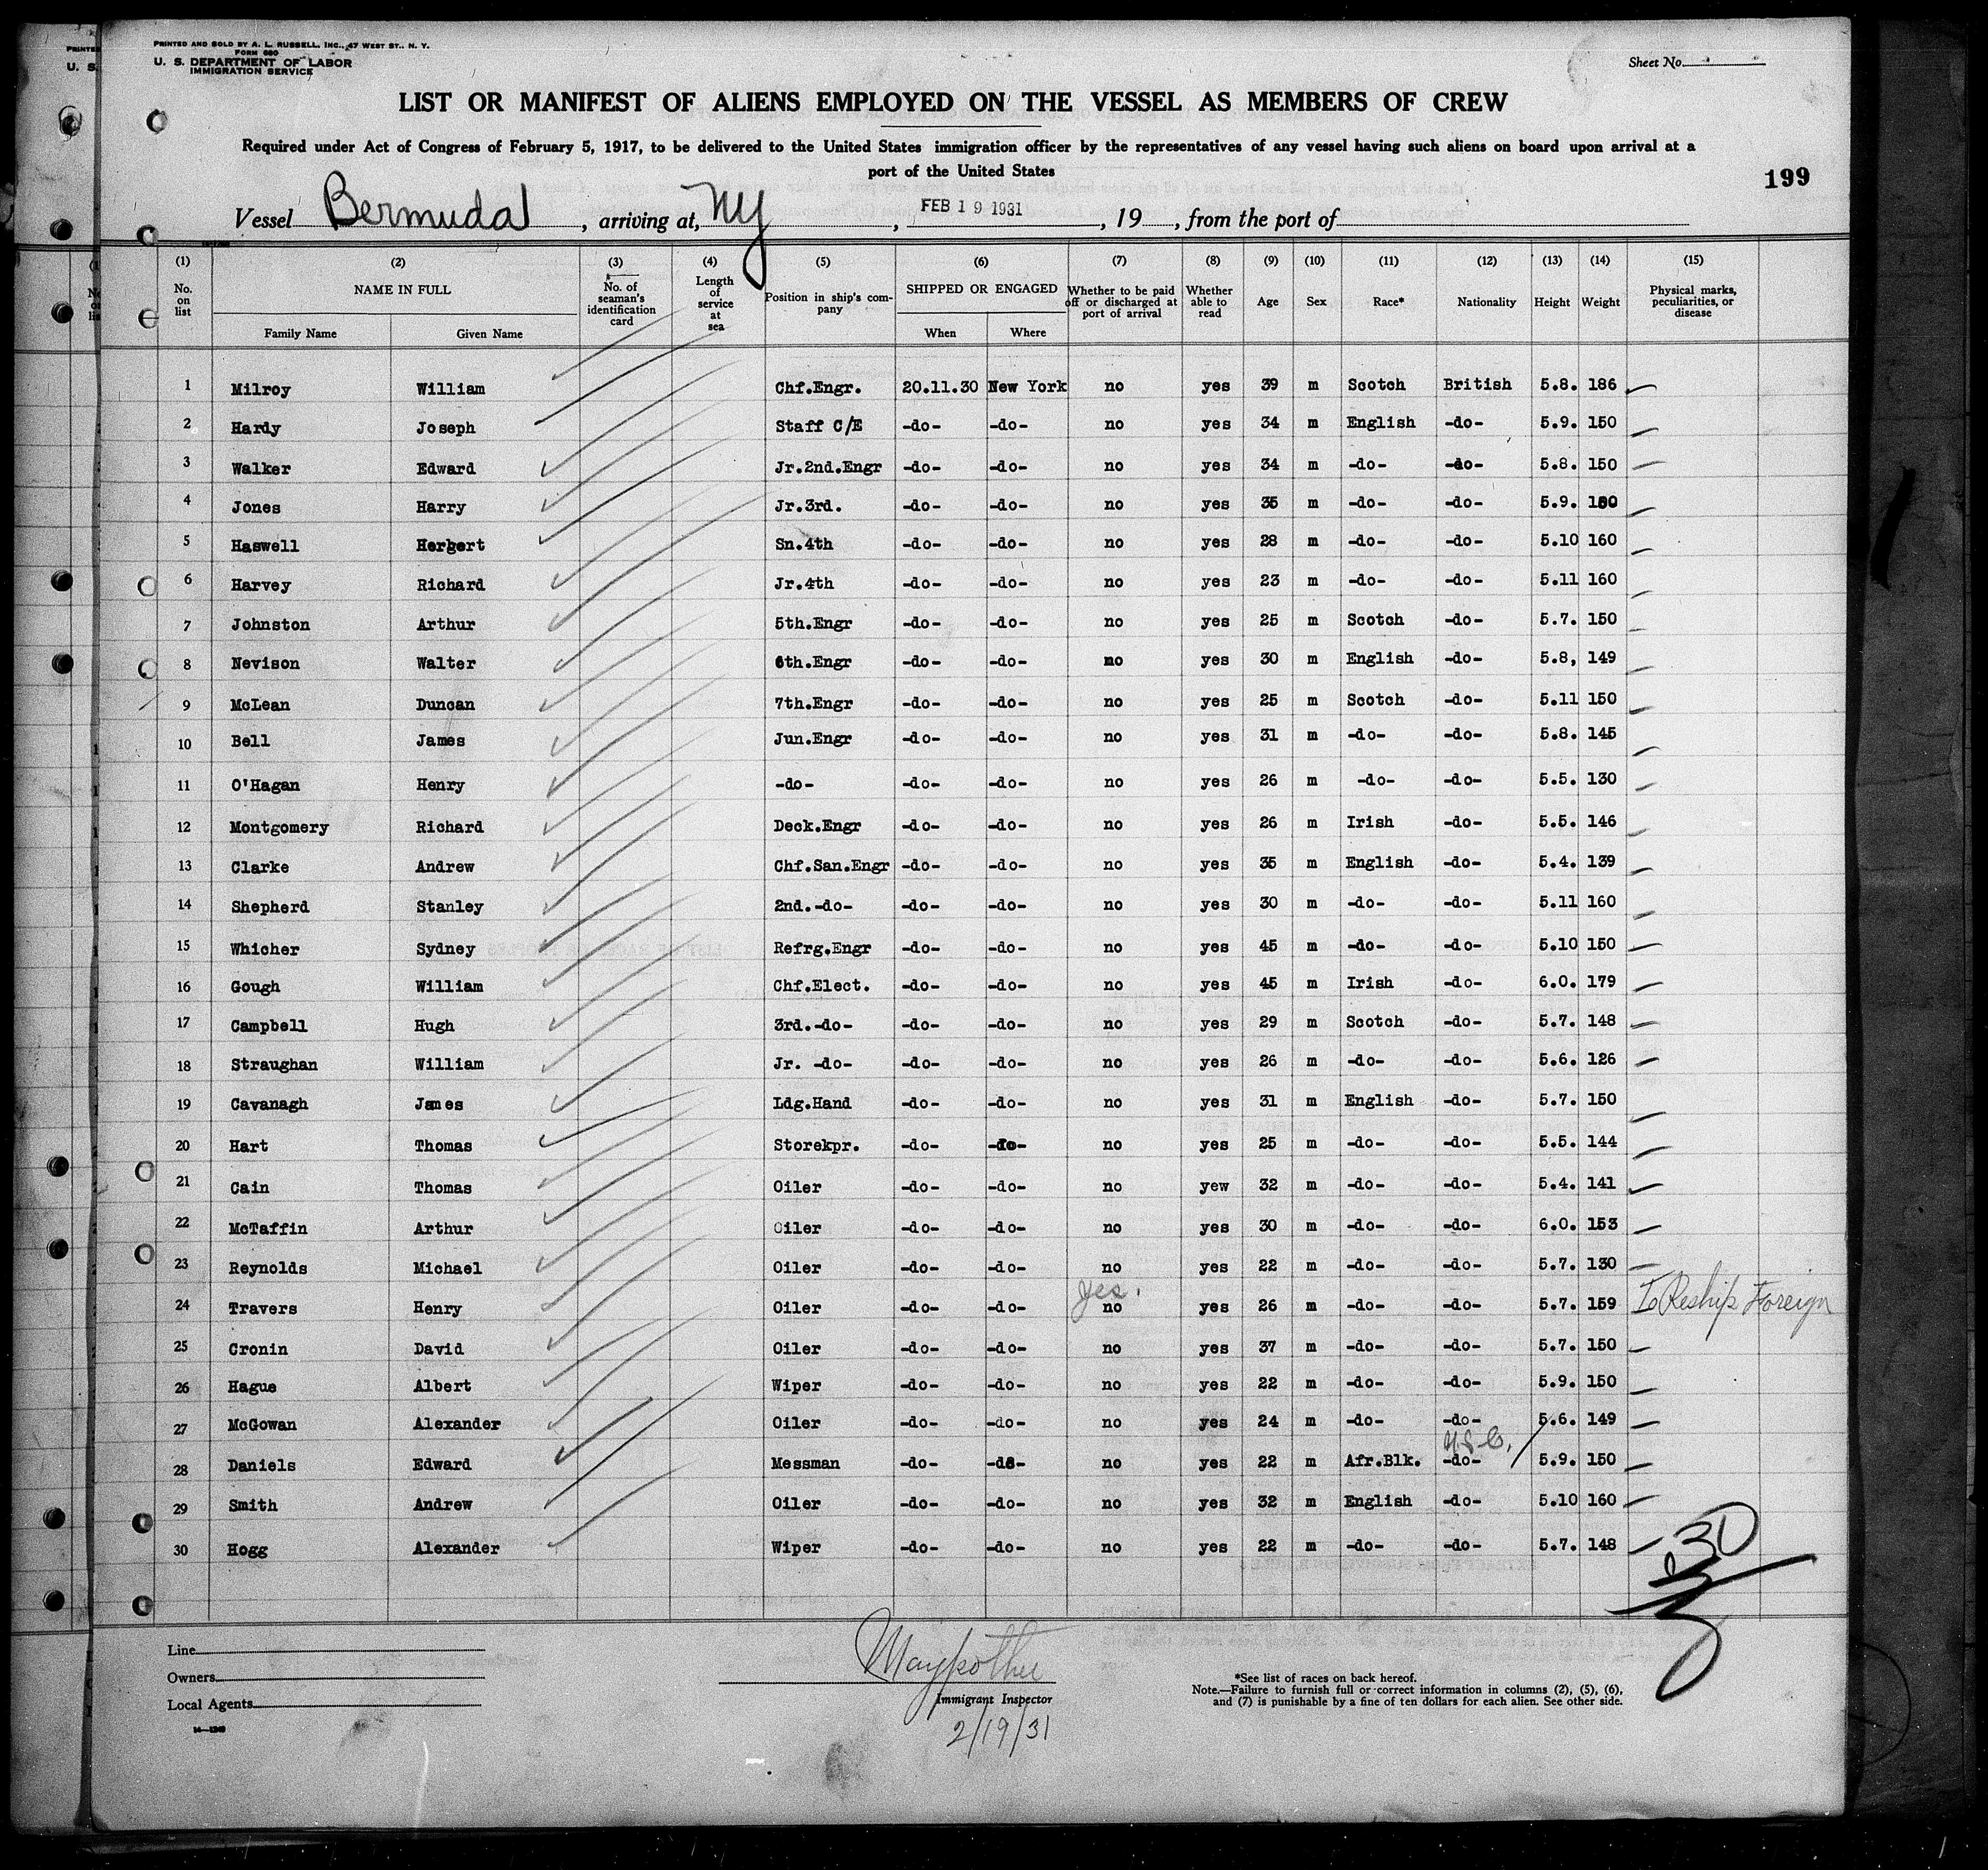 PRINTED AND SOLD BY A. L. RUSSELL, INC., 47 WEST ST., N. Y.
FORM 680
U. S. DEPARTMENT OF LABOR
IMMIGRATION SERVICE
Sheet No.
LIST OR MANIFEST OF ALIENS EMPLOYED ON THE VESSEL AS MEMBERS OF CREW
Required under Act of Congress of February 5, 1917, to be delivered to the United States immigration officer by the representatives of any vessel having such aliens on board upon arrival at a
port of the United States
199
Vessel Bermuda, arriving at, NY, FEB 19 1931, 19, from the port of
(1) (2) (3) (4) (5) (6) (7) (8) (9) (10) (11) (12) (13) (14) (15)
No. on list NAME IN FULL Family Name Given Name No. of seaman's identification card Length of service at sea Position in ship's company SHIPPED OR ENGAGED When Where Whether to be paid off or discharged at port of arrival Whether able to read Age Sex Race* Nationality Height Weight Physical marks, peculiarities, or disease
1 Milroy William Chf.Engr. 20.11.30 New York no yes 39 m Scotch British 5.8. 186
2 Hardy Joseph Staff C/E -do- -do- no yes 34 m English -do- 5.9. 150
3 Walker Edward Jr.2nd.Engr -do- -do- no yes 34 m -do- -do- 5.8. 150
4 Jones Harry Jr.3rd. -do- -do- no yes 35 m -do- -do- 5.9.
5 Haswell Herbert Sn.4th -do- -do- no yes 28 m -do- -do- 5.10 160
6 Harvey Richard Jr.4th -do- -do- no yes 23 m -do- -do- 5.11 160
7 Johnston Arthur 5th.Engr -do- -do- no yes 25 m Scotch -do- 5.7. 150
8 Nevison Walter 6th.Engr -do- -do- no yes 30 m English -do- 5.8, 149
9 McLean Duncan 7th.Engr -do- -do- no yes 25 m Scotch -do- 5.11 150
10 Bell James Jun.Engr -do- -do- no yes 31 m -do- -do- 5.8. 145
11 O'Hagan Henry -do- -do- -do- no yes 26 m -do- -do- 5.5. 130
12 Montgomery Richard Deck.Engr -do- -do- no yes 26 m Irish -do- 5.5. 146
13 Clarke Andrew Chf.San.Engr -do- -do- no yes 35 m English -do- 5.4. 139
14 Shepherd Stanley 2nd.-do- -do- -do- no yes 30 m -do- -do- 5.11 160
15 Whicher Sydney Refrg.Engr -do- -do- no yes 45 m -do- -do- 5.10 150
16 Gough William Chf.Elect. -do- -do- no yes 45 m Irish -do- 6.0. 179
17 Campbell Hugh 3rd.-do- -do- -do- no yes 29 m Scotch -do- 5.7. 148
18 Straughan William Jr. -do- -do- -do- no yes 26 m -do- -do- 5.6. 126
19 Cavanagh James Ldg.Hand -do- -do- no yes 31 m English -do- 5.7. 150
20 Hart Thomas Storekpr. -do- -do- no yes 25 m -do- -do- 5.5. 144
21 Cain Thomas Oiler -do- -do- no yew 32 m -do- -do- 5.4. 141
22 McTaffin Arthur Oiler -do- -do- no yes 30 m -do- -do- 6.0. 153
23 Reynolds Michael Oiler -do- -do- no yes 22 m -do- -do- 5.7. 130
yes.
24 Travers Henry Oiler -do- -do- no yes 26 m -do- -do- 5.7. 159 To Reship Foreign
25 Cronin David Oiler -do- -do- no yes 37 m -do- -do- 5.7. 150
26 Hague Albert Wiper -do- -do- no yes 22 m -do- -do- 5.9. 150
27 McGowan Alexander Oiler -do- -do- no yes 24 m -do- -do- 5.6. 149
U.S.C.
28 Daniels Edward Messman -do- -do- no yes 22 m Afr.Blk. -do- 5.9. 150
29 Smith Andrew Oiler -do- -do- no yes 32 m English -do- 5.10 160
30 Hogg Alexander Wiper -do- -do- no yes 22 m -do- -do- 5.7. 148
30
Line
Owners
Local Agents
Immigrant Inspector
2/19/31
*See list of races on back hereof.
Note.—Failure to furnish full or correct information in columns (2), (5), (6),
and (7) is punishable by a fine of ten dollars for each alien. See other side.